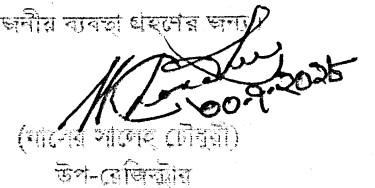 জনীয় ব্যবস্থা গ্রহণের জন্য।
৩০.৭.২০২৮
(নাসের সালেহ চৌধুরী)
উপ-রেজিস্ট্রার